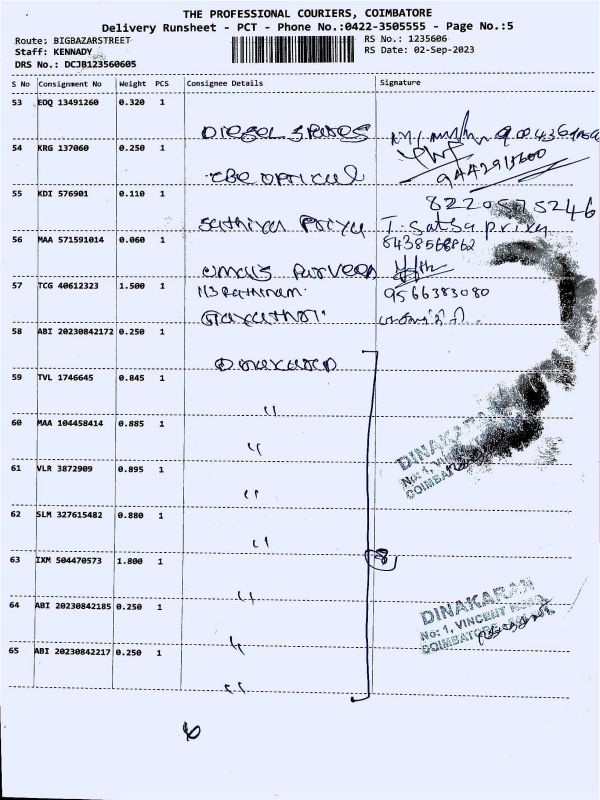 THE PROFESSIONAL COURIERS, COIMBATORE
Delivery Runsheet - PCT - Phone No.:0422-3505555 - Page No.:5
Route: BIGBAZARSTREET
RS No.: 1235606
Staff: KENNADY
RS Date: 02-Sep-2023
DRS No.: DCJB123560605
S No Consignment No Weight PCS Consignee Details Signature
53 EDQ 13491260 0.320 1
DIESEL
54 KRG 137060 0.250 1
OPTICAL 9442915600
55 KDI 576901 0.110 1
8220575246
Sathiya Priya T. Sathya priya
56 MAA 571591014 0.060 1
8438568862
Parveen
57 TCG 40612323 1.500 1
113 Rathinam. 9566383080
Gayathri.
58 ABI 20230842172 0.250 1
Dinakaran
59 TVL 1746645 0.845 1
"
60 MAA 104458414 0.885 1
"
61 VLR 3872909 0.895 1
"
DINAKARAN
No: 1, VINCENT
COIMBATORE
62 SLM 327615482 0.880 1
"
63 IXM 504470573 1.800 1
8
"
64 ABI 20230842185 0.250 1
"
DINAKARAN
No: 1, VINCENT ROAD,
COIMBATORE
65 ABI 20230842217 0.250 1
"